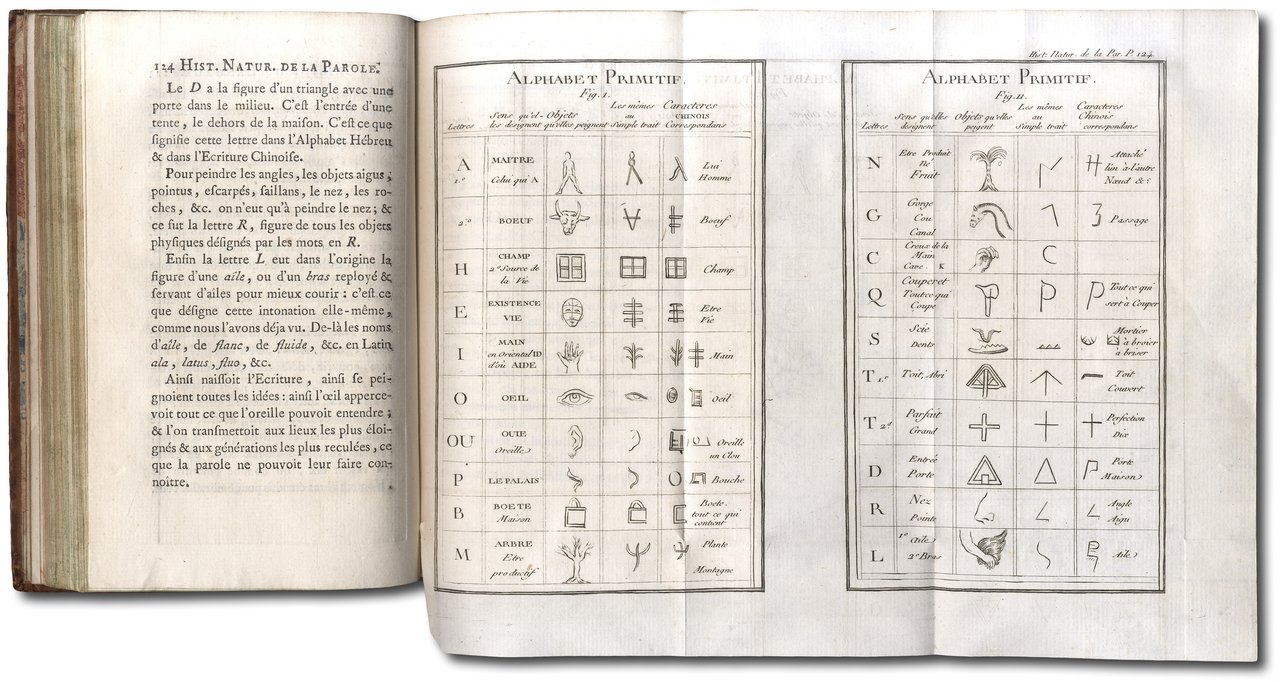 124 HIST. NATUR. DE LA PAROLE.
Le D a la figure d'un triangle avec une
porte dans le milieu. C'eſt l'entrée d'une
tente, le dehors de la maiſon. C'eſt ce que
ſignifie cette lettre dans l'Alphabet Hébreu
& dans l'Ecriture Chinoiſe.
Pour peindre les angles, les objets aigus,
pointus, eſcarpés, ſaillans, le nez, les ro-
ches, &c. on n'eut qu'à peindre le nez; &
ce fut la lettre R, figure de tous les objets
phyſiques déſignés par les mots en R.
Enfin la lettre L eut dans l'origine la
figure d'une aîle, ou d'un bras reployé &
ſervant d'aîles pour mieux courir : c'eſt ce
que déſigne cette intonation elle-même,
comme nous l'avons déja vu. De-là les noms
d'aîle, de flanc, de fluide, &c. en Latin
ala, latus, fluo, &c.
Ainſi naiſſoit l'Ecriture, ainſi ſe pei-
gnoient toutes les idées : ainſi l'œil apperce-
voit tout ce que l'oreille pouvoit entendre ;
& l'on tranſmettoit aux lieux les plus éloi-
gnés & aux générations les plus reculées, ce
que la parole ne pouvoit leur faire con-
noître.
ALPHABET PRIMITIF.
Fig. I.
Lettres
Sens qu'el-
les désignent
Objets
qu'elles peignent
Les mêmes
au
Simple trait
Caracteres
CHINOIS
Correspondans
A
1.º
MAITRE
Celui qui A
Lui
Homme
2.º
BOEUF
Boeuf
H
CHAMP
2e Source de
la Vie
Champ
E
EXISTENCE
VIE
Etre
Vie
I
MAIN
en Oriental ID
d'où AIDE
Main
O
OEIL
Oeil
OU
OUIE
Oreille
Oreille
un Clou
P
LE PALAIS
Bouche
B
BOETE
Maison
Boete.
tout ce qui
contient
M
ARBRE
Etre
productif
Plante
Montagne
Hist. Natur. de la Par. P. 124.
ALPHABET PRIMITIF.
Fig. II.
Lettres
Sens qu'elles
désignent
Objets qu'elles
peigent
Les mêmes
au
Simple trait
Caracteres
Chinois
correspondans
N
Etre Produit
Né
Fruit
Attaché
l'un à-l'autre
Nœud &c
G
Gorge
Cou
Canal
Passage
C
Creux de la
Main
Cave. K
Q
Couperet
Tout ce qui
Coupe
Tout ce qui
sert à Couper
S
Scie
Dents
Mortier
à broier
à briser
T 1er
Toit, Abri
Toit
Couvert
T 2d
Parfait
Grand
Perfection
Dix
D
Entrée
Porte
Porte
Maison
R
Nez
Pointe
Angle
Aigu
L
1º Aile
2º Bras
Aile